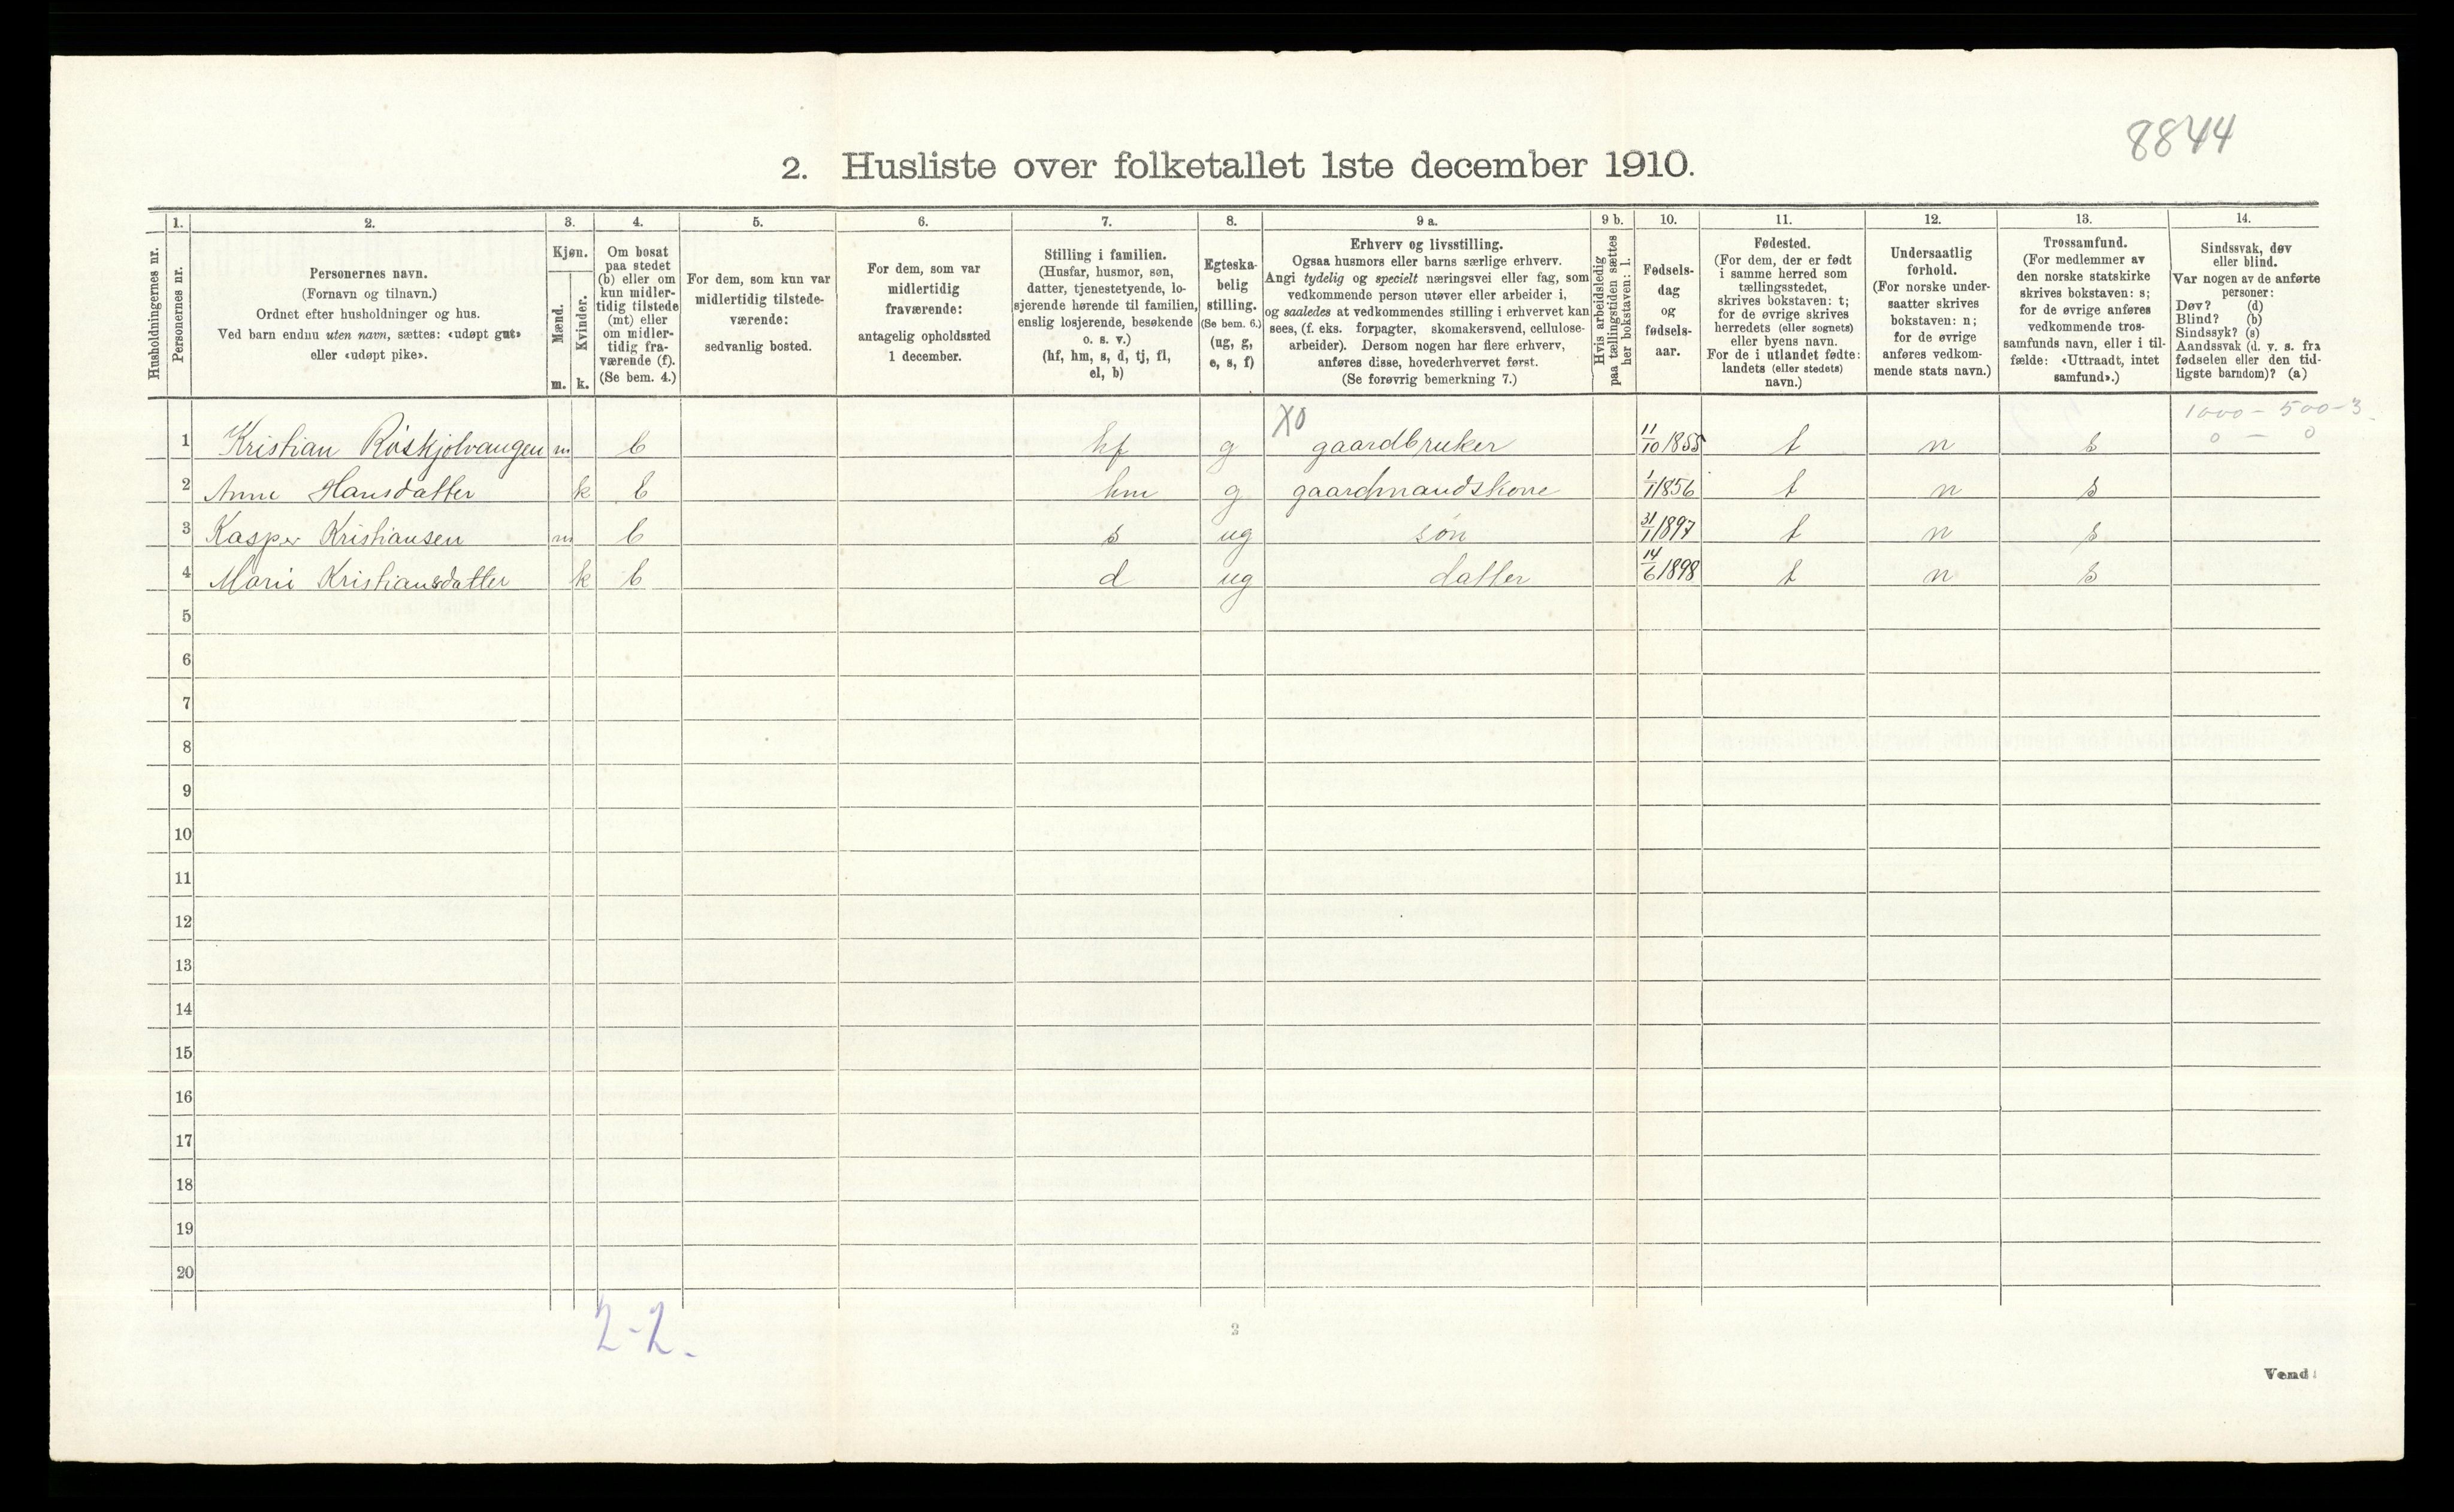 8844
2. Husliste over folketallet 1ste december 1910.
1. 2. 3. 4. 5. 6. 7. 8. 9 a. 9 b. 10. 11. 12. 13. 14.
Husholdningernes nr.
Personernes nr.
Personernes navn.
(Fornavn og tilnavn.)
Ordnet efter husholdninger og hus.
Ved barn endnu uten navn, sættes: «udøpt gut»
eller «udøpt pike».
Kjøn.
Mænd.
Kvinder.
m. k.
Om bosat
paa stedet
(b) eller om
kun midler-
tidig tilstede
(mt) eller
om midler-
tidig fra-
værende (f).
(Se bem. 4.)
For dem, som kun var
midlertidig tilstede-
værende:
sedvanlig bosted.
For dem, som var
midlertidig
fraværende:
antagelig opholdssted
1 december.
Stilling i familien.
(Husfar, husmor, søn,
datter, tjenestetyende, lo-
sjerende hørende til familien,
enslig losjerende, besøkende
o. s. v.)
(hf, hm, s, d, tj, fl,
el, b)
Egteska-
belig
stilling.
(Se bem. 6.)
(ug, g,
e, s, f)
Erhverv og livsstilling.
Ogsaa husmors eller barns særlige erhverv.
Angi tydelig og specielt næringsvei eller fag, som
vedkommende person utøver eller arbeider i,
og saaledes at vedkommendes stilling i erhvervet kan
sees, (f. eks. forpagter, skomakersvend, cellulose-
arbeider). Dersom nogen har flere erhverv,
anføres disse, hovederhvervet først.
(Se forøvrig bemerkning 7.)
Hvis arbeidsledig
paa tællingstiden sættes
her bokstaven: l.
Fødsels-
dag
og
fødsels-
aar.
Fødested.
(For dem, der er født
i samme herred som
tællingsstedet,
skrives bokstaven: t;
for de øvrige skrives
herredets (eller sognets)
eller byens navn.
For de i utlandet fødte:
landets (eller stedets)
navn.)
Undersaatlig
forhold.
(For norske under-
saatter skrives
bokstaven: n;
for de øvrige
anføres vedkom-
mende stats navn.)
Trossamfund.
(For medlemmer av
den norske statskirke
skrives bokstaven: s;
for de øvrige anføres
vedkommende tros-
samfunds navn, eller i til-
fælde: «Uttraadt, intet
samfund».)
Sindssvak, døv
eller blind.
Var nogen av de anførte
personer:
Døv? (d)
Blind? (b)
Sindssyk? (s)
Aandssvak (d. v. s. fra
fødselen eller den tid-
ligste barndom)? (a)
X0 1000 - 500 - 3
1 Kristian Röskjolvangen m b hf g gaardbruker 11/10 1855 t n s 0 - 0
2 Anne Hansdatter k b hm g gaardmandskone 1/1 1856 t n s
3 Kasper Kristiansen m b s ug søn 31/1 1897 t n s
4 Marie Kristiansdatter k b d ug datter 14/6 1898 t n s
5
6
7
8
9
10
11
12
13
14
15
16
17
18
19
20
2-2.
2
Vend!